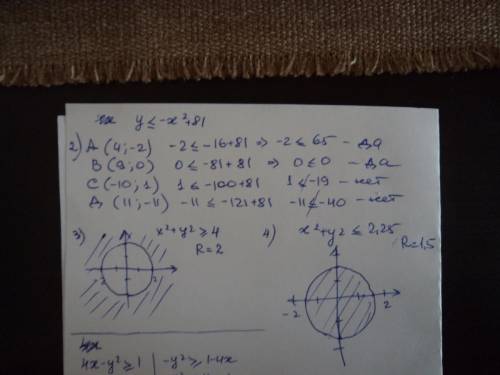 y ≤ -x²+81
2) A (4; -2) -2 ≤ -16+81 => -2 ≤ 65 - да
B (9; 0) 0 ≤ -81+81 => 0 ≤ 0 - да
C (-10; 1) 1 ≤ -100+81 1 ≰ -19 - нет
Д (11; -11) -11 ≤ -121+81 -11 ≰ -40 - нет
3) x²+y² ≥ 4
R=2
-2 2
4) x²+y² ≤ 2,25
R=1,5
-2 2
4x-y² ≥ 1 | -y² ≥ 1-4x